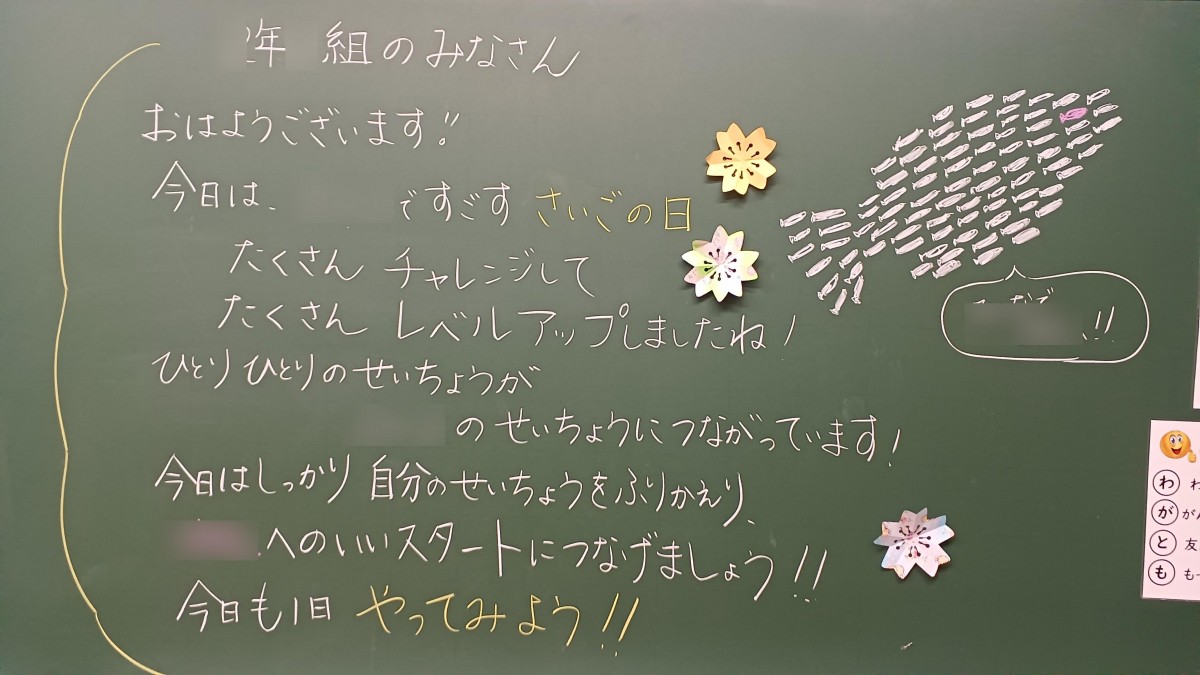 2年 組のみなさん
おはようございます!!
今日は、 ですごす さいごの日
たくさん チャレンジして
たくさん レベルアップしましたね!
ひとりひとりのせいちょうが
のせいちょうにつながっています!
今日はしっかり自分のせいちょうをふりかえり、
へのいいスタートにつなげましょう!!
今日も1日 やってみよう!!
!!
わ わ
が がん
と 友
も もっ